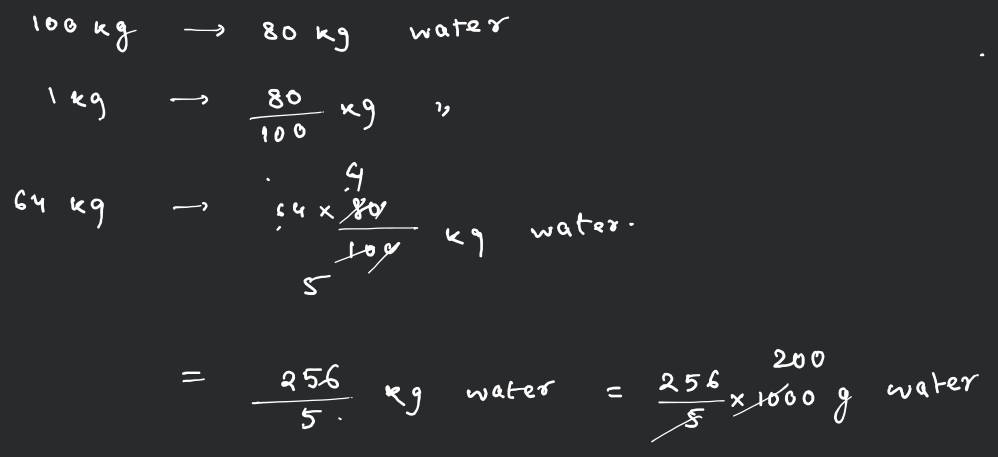 100 kg → 80 kg water
1 kg → 80/100 kg ,,
64 kg → 64 × 80/100 kg water.
4
5
= 256/5 kg water = 256/5 × 1000 g water
200